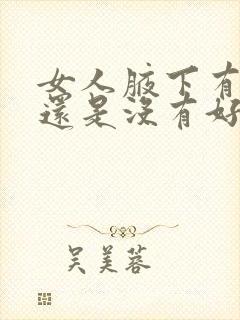 女人腋下有
還是沒有好
吳美蓉